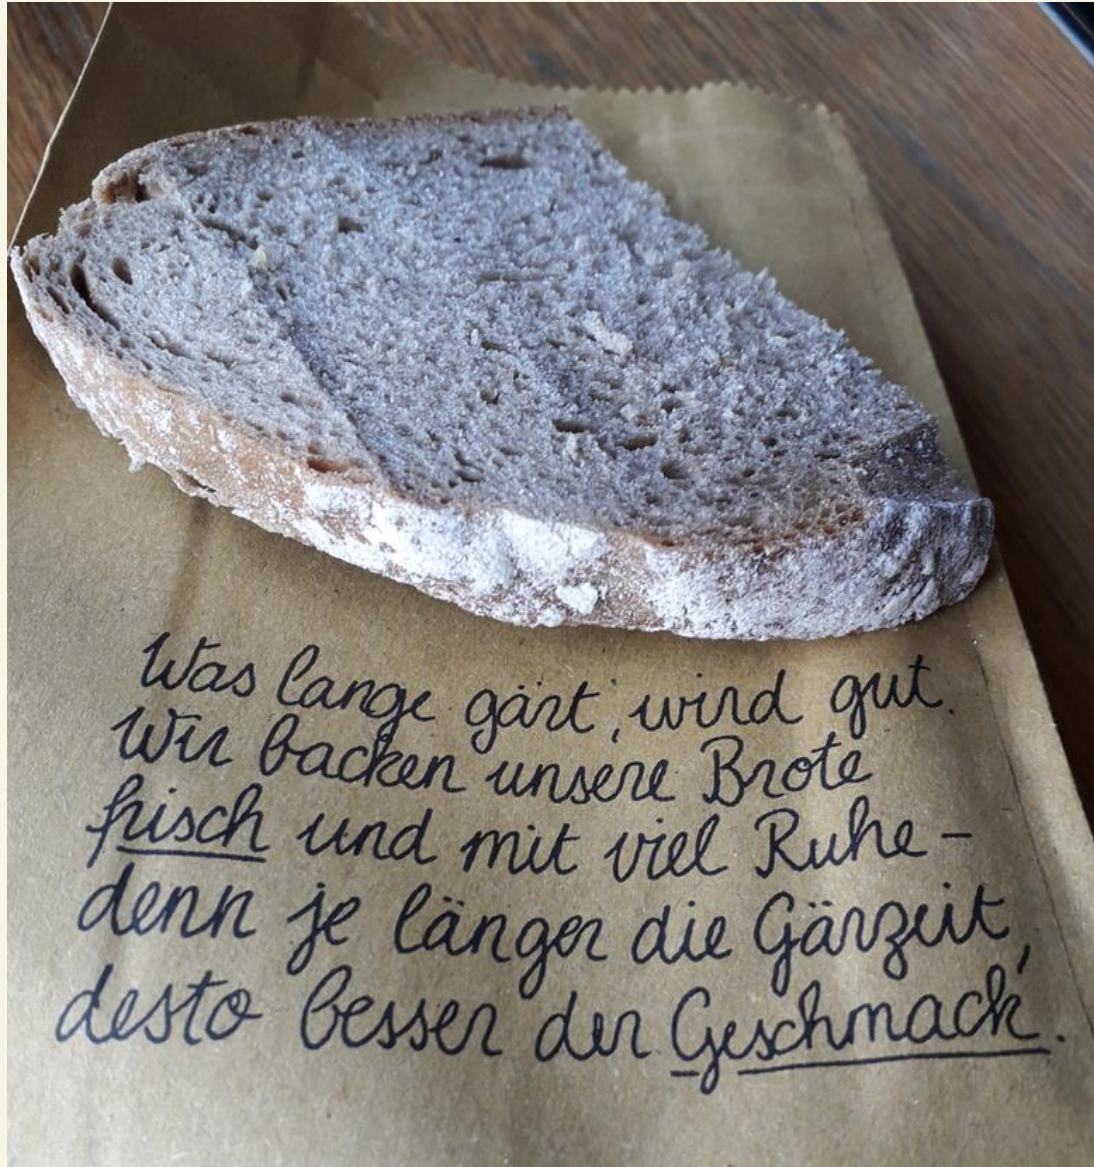 Was lange gärt, wird gut.
Wir backen unsere Brote
frisch und mit viel Ruhe –
denn je länger die Gärzeit,
desto besser der Geschmack.